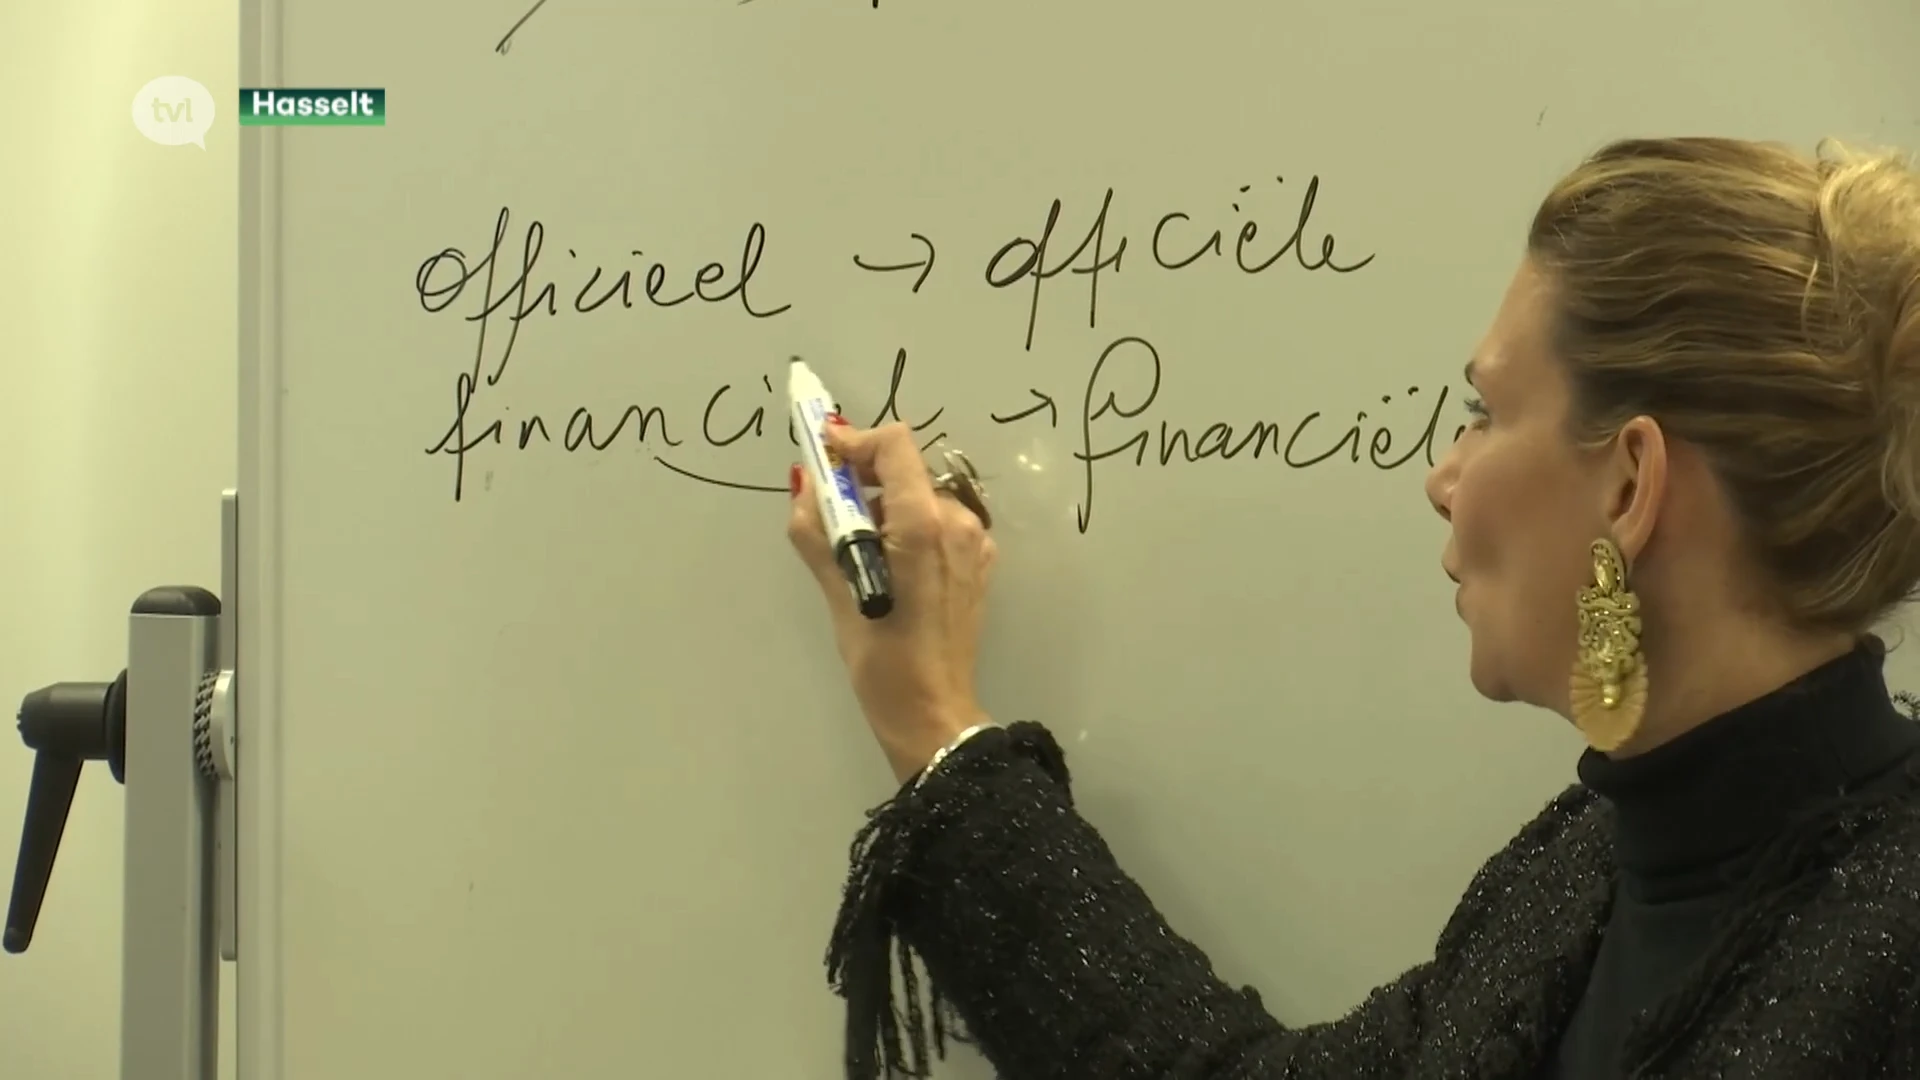 tvl
Hasselt
Officieel → officiële
financieel → financiël